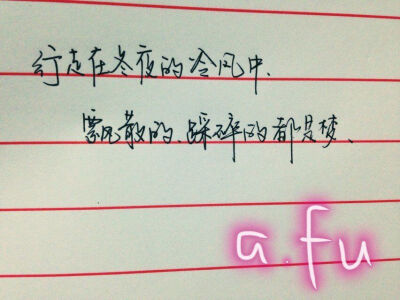 行走在冬夜的冷风中.
飘散的.踩碎的都是梦、
a.fu